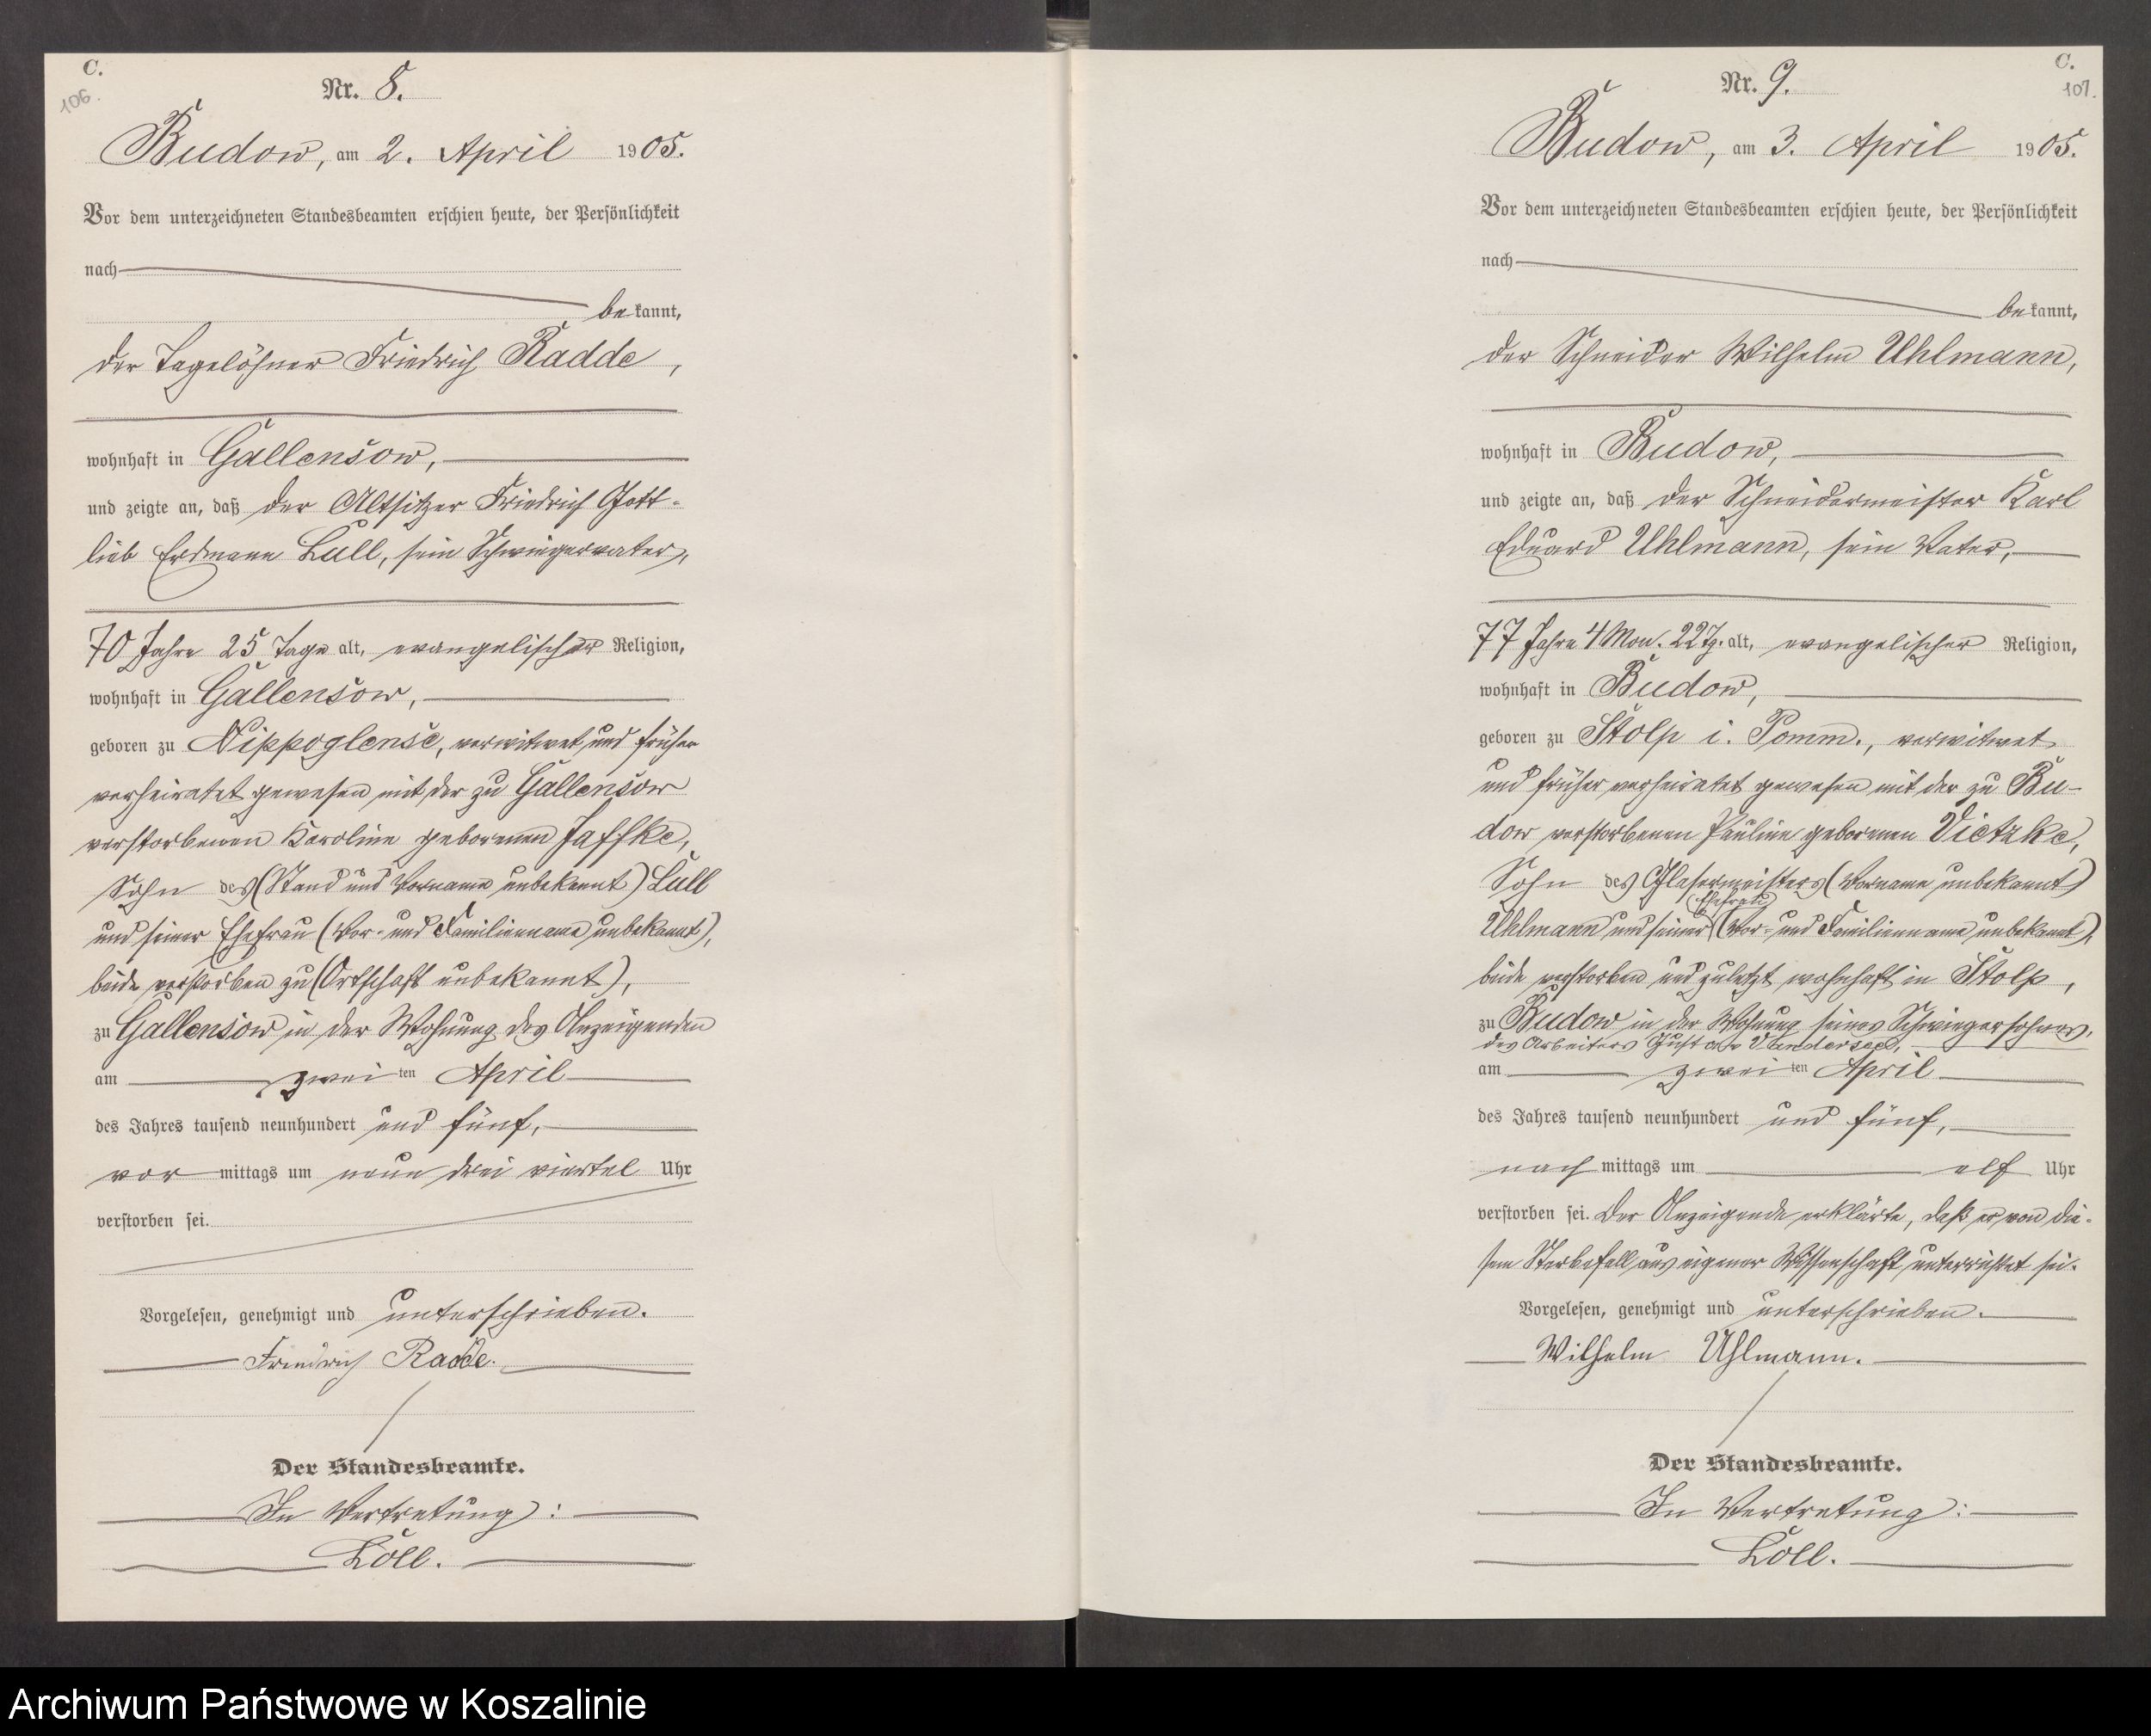 C.
106.
Nr. 8.
Budow, am 2. April 1905.
Vor dem unterzeichneten Standesbeamten erschien heute, der Persönlichkeit
nach
bekannt,
der Tagelöhner Friedrich Radde,
wohnhaft in Gallensow,
und zeigte an, daß der Altsitzer Friedrich Gott-
lieb Erdmann Lull, sein Schwiegervater,
70 Jahre 25 Tage alt, evangelischer Religion,
wohnhaft in Gallensow,
geboren zu Nippoglense, verwitwet und früher
verheiratet gewesen mit der zu Gallensow
verstorbenen Karoline geborenen Jaffke,
Sohn des (Stand und Vorname unbekannt) Lull
und seiner Ehefrau (Vor- und Familienname unbekannt),
beide verstorben zu (Ortschaft unbekannt),
zu Gallensow in der Wohnung des Anzeigenden
am zweiten April
des Jahres tausend neunhundert und fünf,
vormittags um neun drei viertel Uhr
verstorben sei.
Vorgelesen, genehmigt und unterschrieben.
Friedrich Radde.
Der Standesbeamte.
In Vertretung:
Löll.
C.
107.
Nr. 9.
Budow, am 3. April 1905.
Vor dem unterzeichneten Standesbeamten erschien heute, der Persönlichkeit
nach
bekannt,
der Schneider Wilhelm Uhlmann,
wohnhaft in Budow,
und zeigte an, daß der Schneidermeister Karl
Eduard Uhlmann, sein Vater,
77 Jahre 4 Mon. 22 Tg. alt, evangelischer Religion,
wohnhaft in Budow,
geboren zu Stolp i. Pomm., verwitwet
und früher verheiratet gewesen mit der zu Bu-
dow verstorbenen Pauline geborenen Vietzke,
Sohn des Glasermeisters (Vorname unbekannt)
Uhlmann und seiner Ehefrau (Vor- und Familienname unbekannt),
beide verstorben und zuletzt wohnhaft in Stolp,
zu Budow in der Wohnung seines Schwiegersohnes,
des Arbeiters Gustav Vandersee,
am zweiten April
des Jahres tausend neunhundert und fünf,
nachmittags um elf Uhr
verstorben sei. Der Anzeigende erklärte, daß er von die-
sem Sterbefall aus eigener Wissenschaft unterrichtet sei.
Vorgelesen, genehmigt und unterschrieben.
Wilhelm Uhlmann.
Der Standesbeamte.
In Vertretung:
Löll.
Archiwum Państwowe w Koszalinie